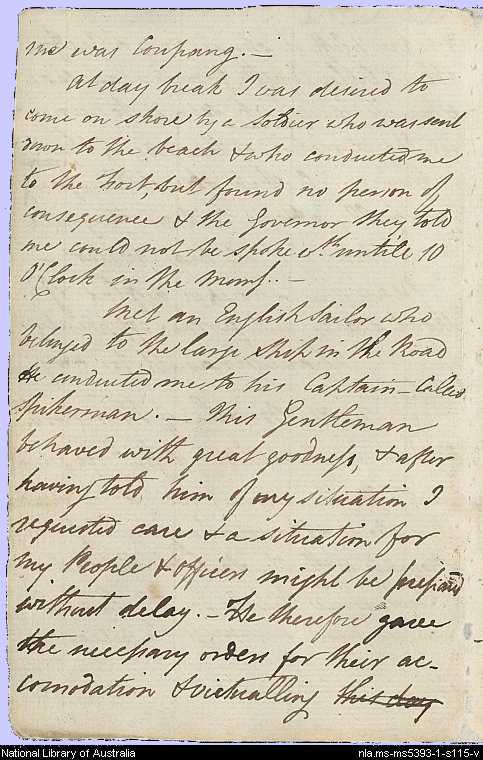 me was Coupang. —
At day break I was desired to
come on shore by a Soldier who was sent
down to the beach & who conducted me
to the Fort, but found no person of
consequence & the Governor they told
me could not be spoke wth untile 10
O'Clock in the Morng.. —
Met an English Sailor who
belonged to the large Ship in the Road
He conducted me to his Captain —
Spikerman. — This Gentleman
behaved with great goodness, & after
having told him of my situation I
requested care & a situation for
my People & officers might be prepared
without delay. — He therefore gave
the necessary orders for their ac-
comodation & victualling this day
National Library of Australia
nla.ms-ms5393-1-s115-v